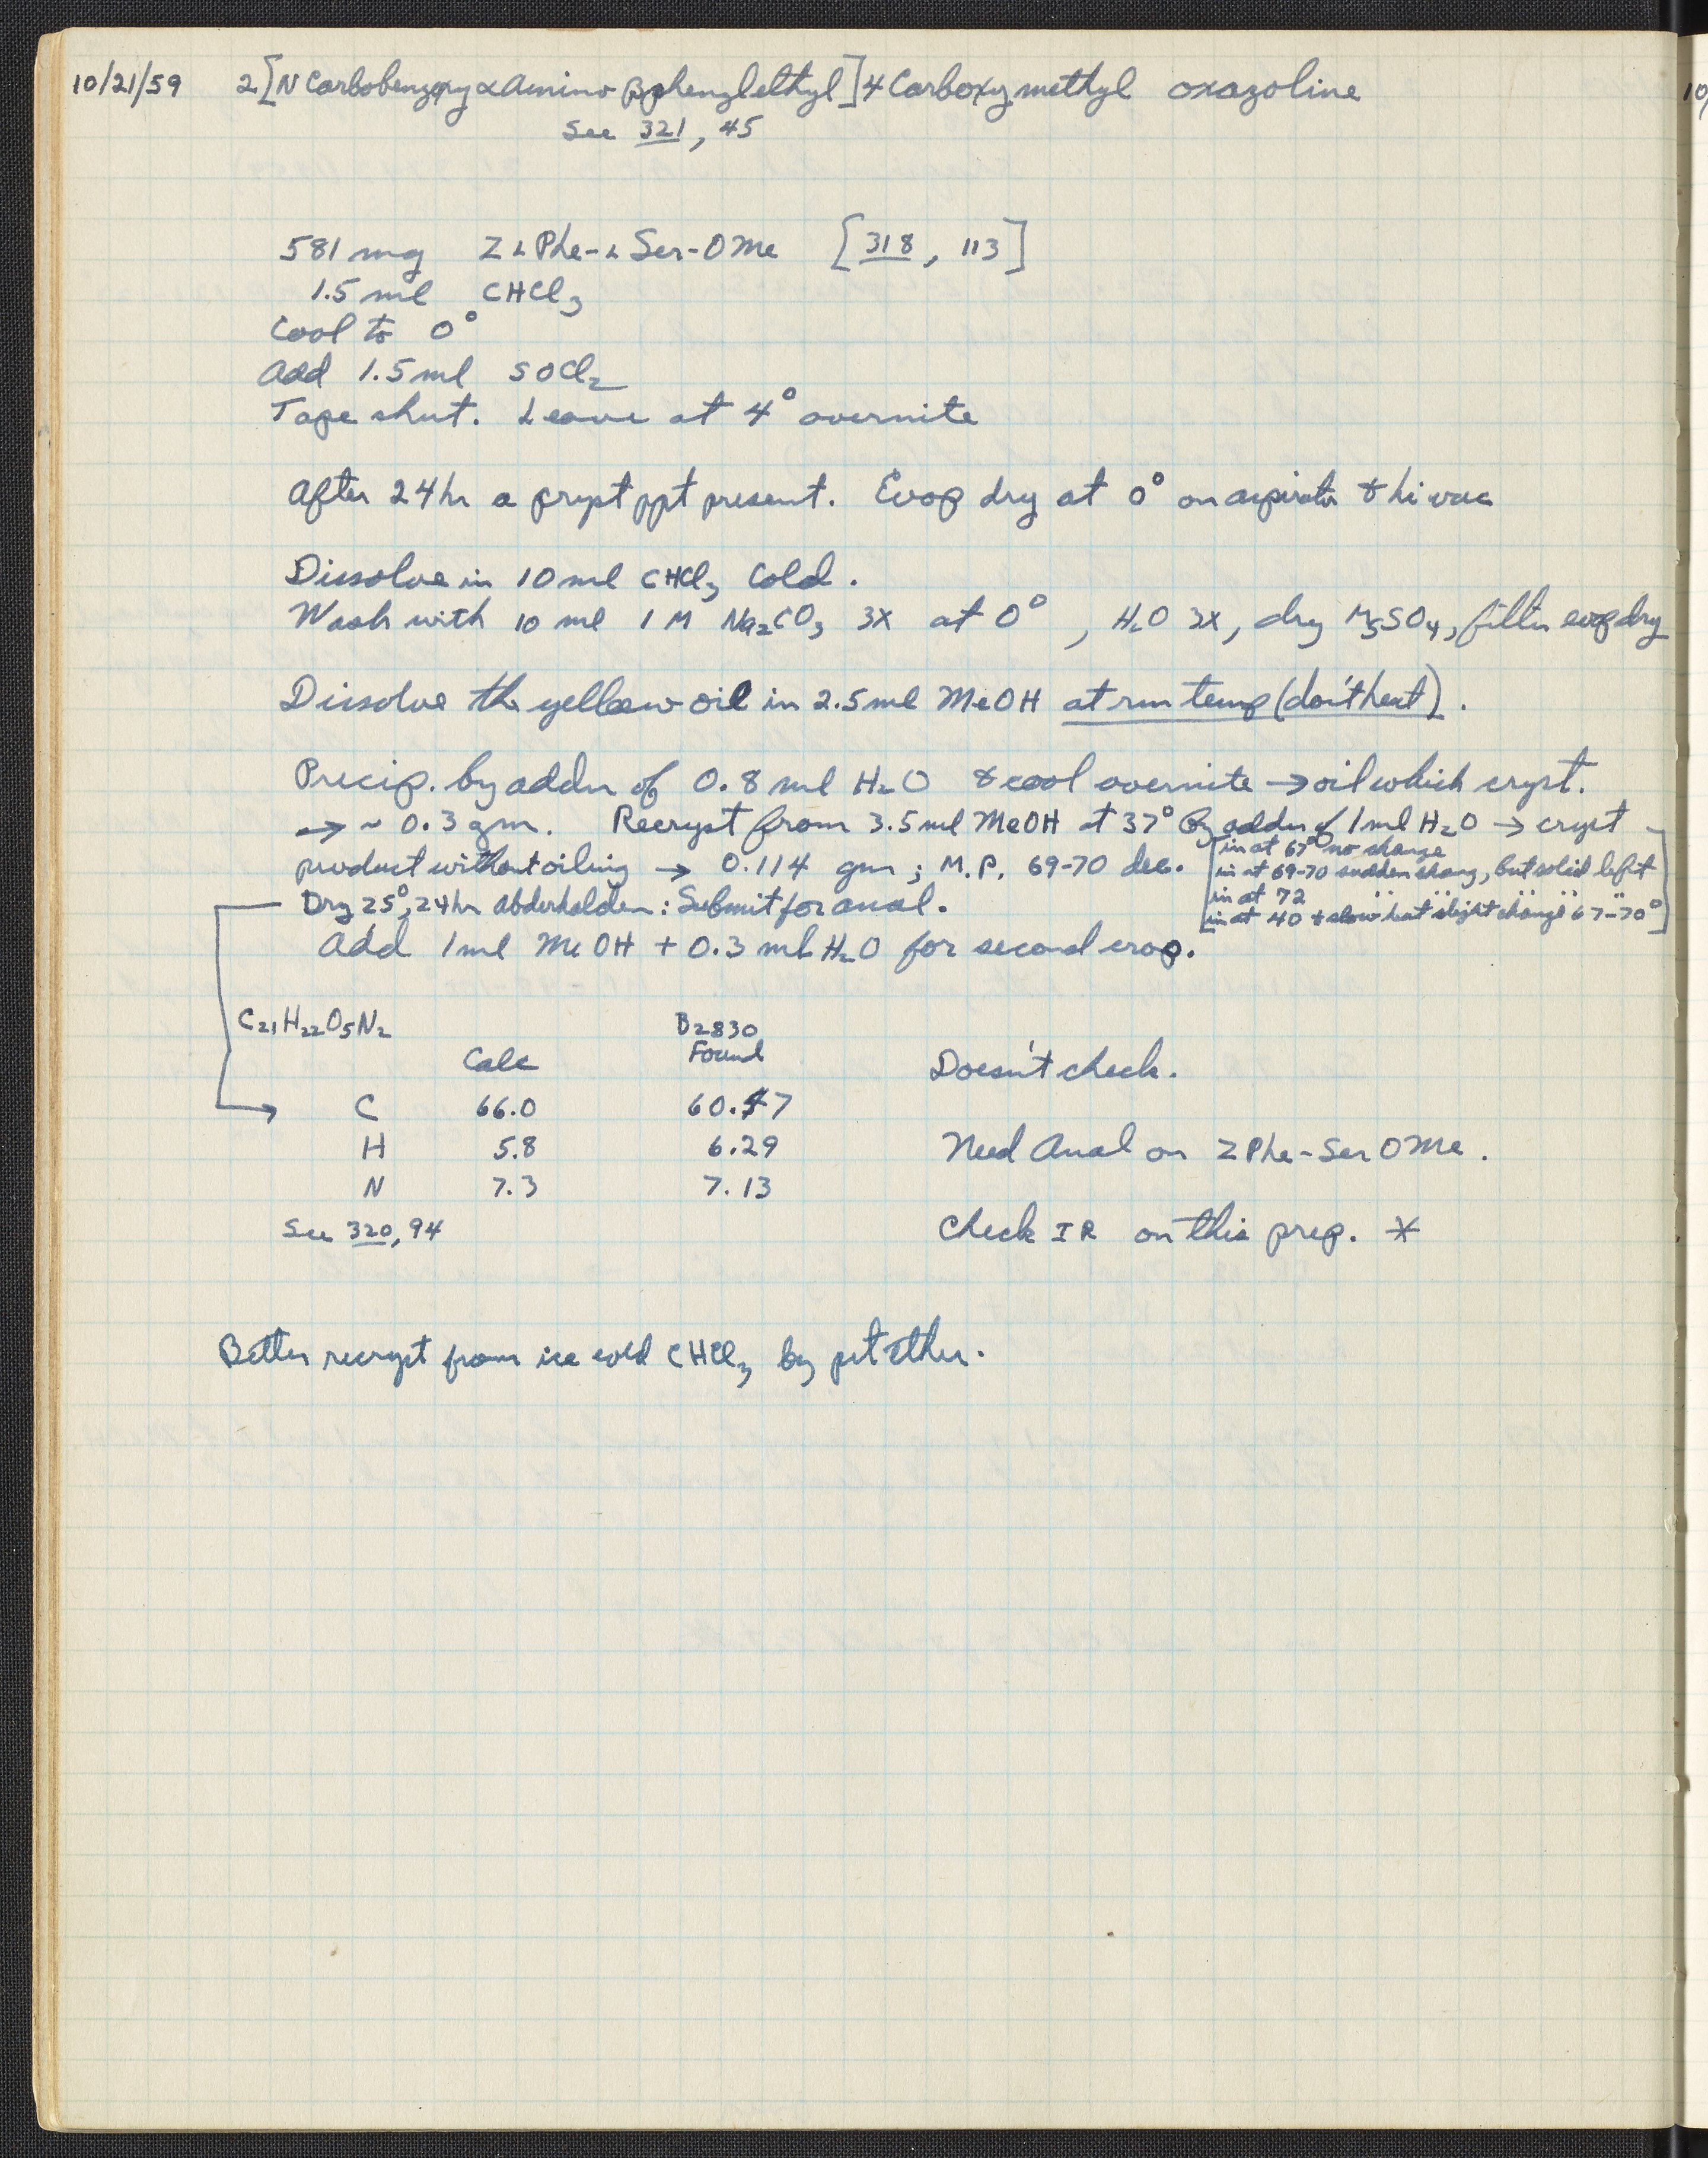 10/21/59 2[N Carbobenzoxy α Amino β phenylethyl] 4 Carboxymethyl oxazoline
See 321, 45
581 mg Z L Phe-L Ser-OMe [318, 113]
1.5 ml CHCl₃
Cool to 0°
Add 1.5 ml SOCl₂
Tape shut. Leave at 4° overnite
After 24 hr a cryst ppt present. Evap dry at 0° on aspirator & hi vac
Dissolve in 10 ml CHCl₃ Cold.
Wash with 10 ml 1 M Na₂CO₃ 3X at 0°, H₂O 3X, dry MgSO₄, filter evap dry
Dissolve the yellow oil in 2.5 ml MeOH at rm temp (don't heat).
Precip. by addn of 0.8 ml H₂O & cool overnite → oil which cryst.
→ ~ 0.3 gm. Recryst from 3.5 ml MeOH at 37° By addn of 1 ml H₂O → cryst
product without oiling → 0.114 gm; M.P. 69-70 dec.
[in at 67° no change
in at 69-70 sudden chang, but solid left
in at 72 " " " " "
in at 40 + slow heat slight change 67-70°]
Dry 25°, 24hr abderhalden: Submit for anal.
Add 1 ml MeOH + 0.3 ml H₂O for second crop.
C₂₁H₂₂O₅N₂ B2830
Calc Found Doesn't check.
C 66.0 60.47
H 5.8 6.29 Need Anal on ZPhe-Ser OMe.
N 7.3 7.13
See 320, 94 Check IR on this prep. *
Better recryst from ice cold CHCl₃ by pet ether.